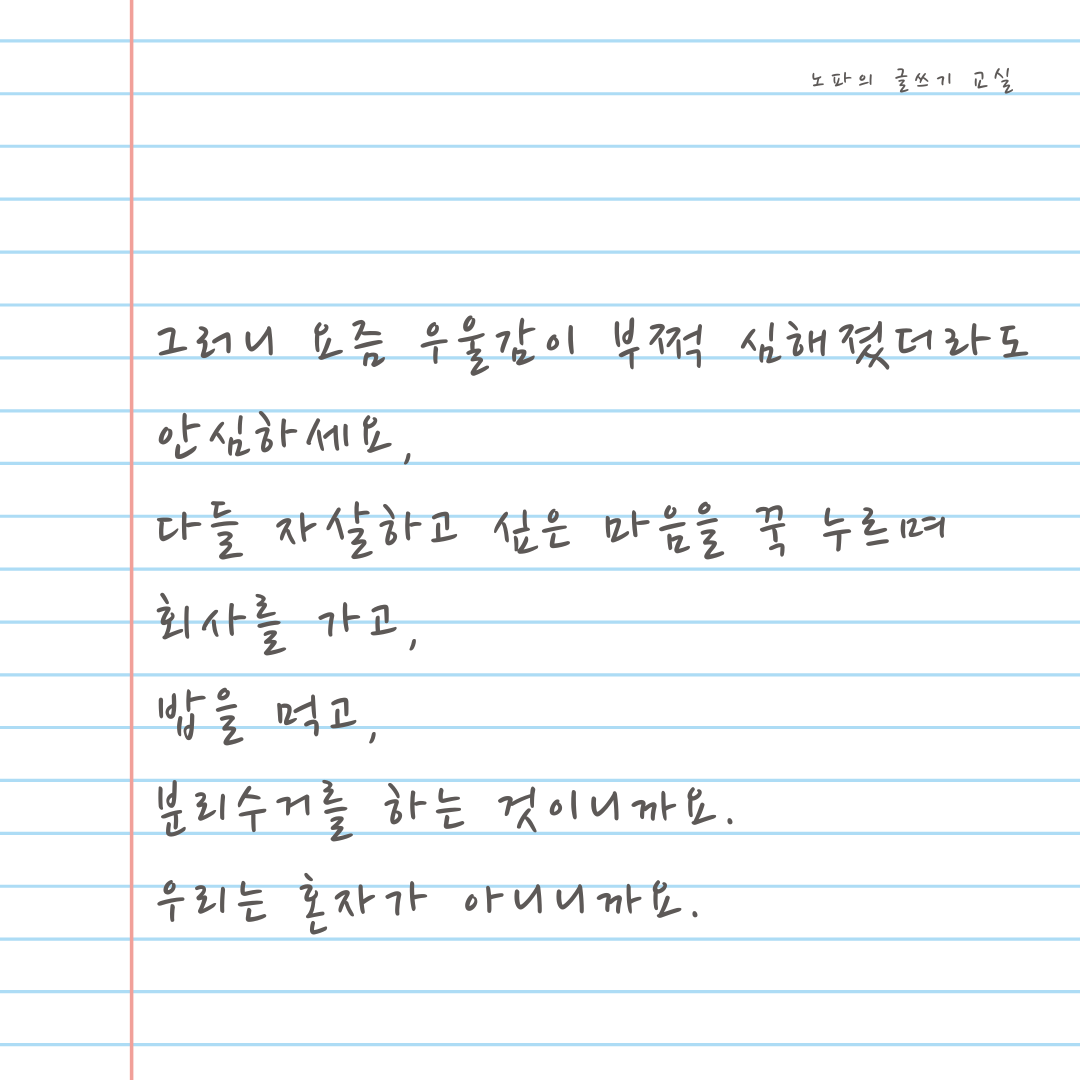 노파의 글쓰기 교실
그러니 요즘 우울감이 부쩍 심해졌더라도
안심하세요,
다들 자살하고 싶은 마음을 꾹 누르며
회사를 가고,
밥을 먹고,
분리수거를 하는 것이니까요.
우리는 혼자가 아니니까요.